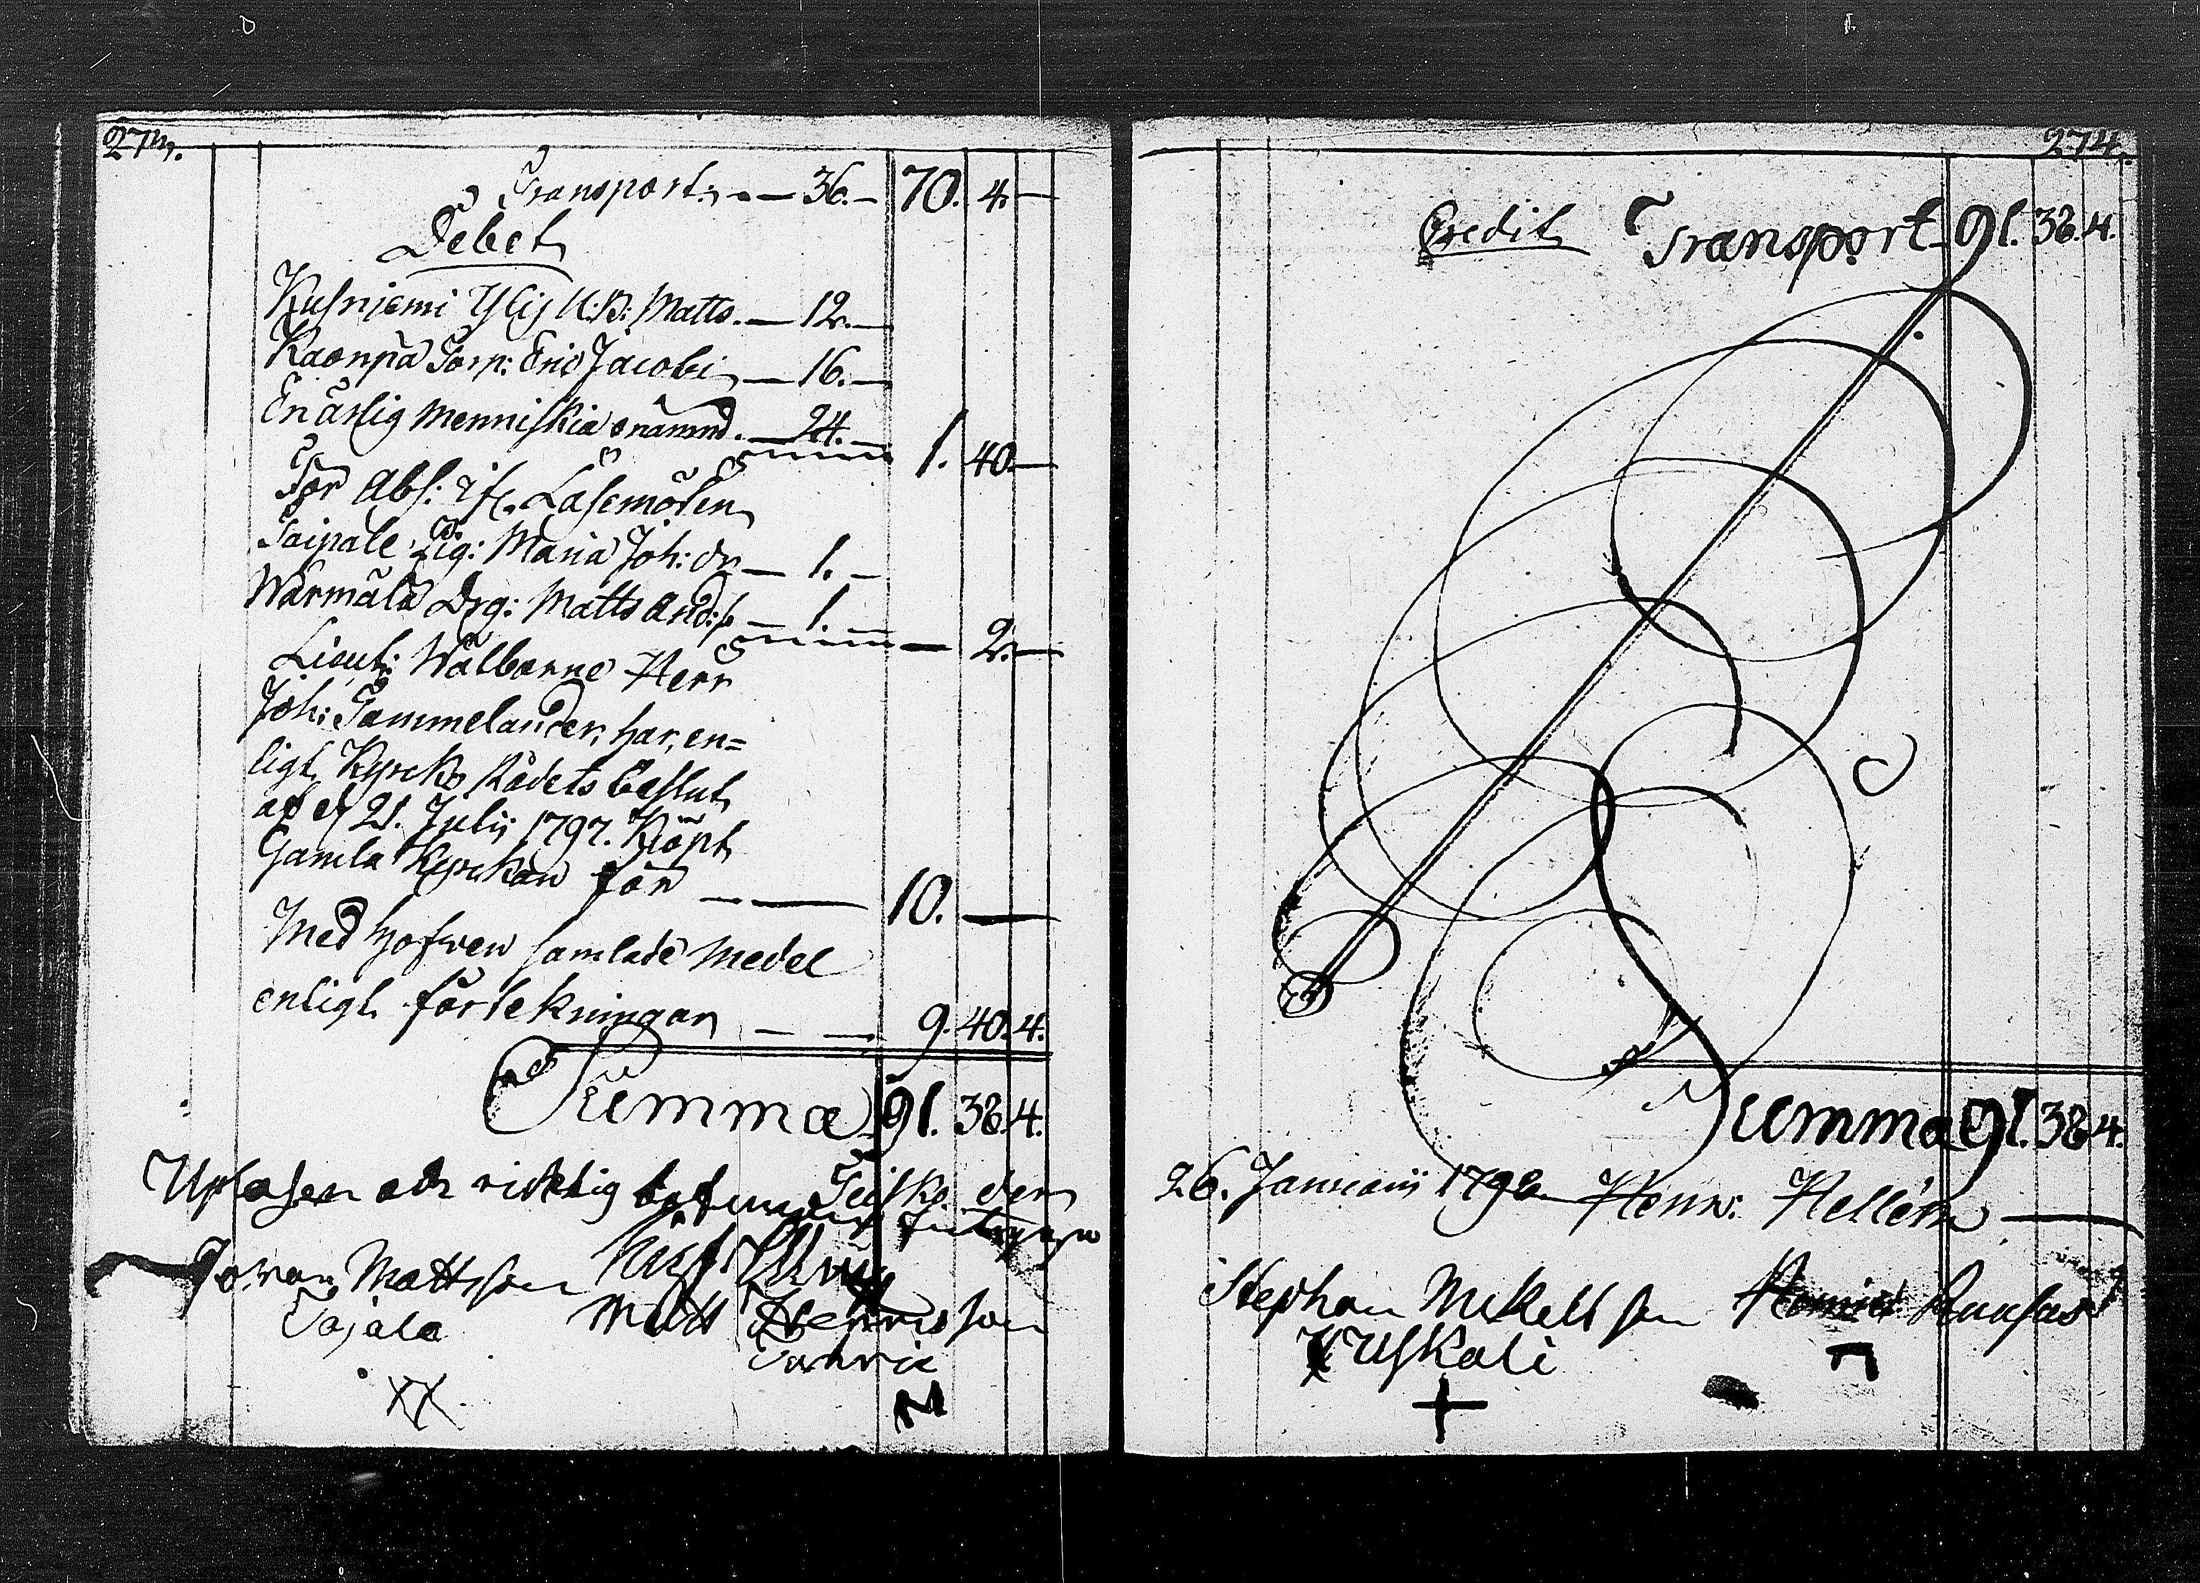 274.
Transport. — 36. — 70. 4. —
Debet
Kusniemi Ylis U.B: Matts. — 12. —
Kaonpä Torp: Eric Jacobi — 16. —
En ärlig Menniskia onämnd. — 24. — 1. 40. —
För Abs: if. Läsemöten
Taipale Pig: Maria Joh: dr — 1. —
Wärmälä Drg: Matts And:s — 1. — — 2. —
Lieut: Wälborne Herr
Joh: Gammelander, har, en=
ligt Kyrcko Rådets Beslut
af d 21. Julii 1797. Kiöpt
Gamla Kyrckan för — — 10. —
Med Hofwen samlade Medel
enligt förtekningar — — 9. 40. 4.
Summa 91. 38. 4.
Uplasen och richtig befunnen Teisko den
Johan Mattsson
Tojala
Matt Henricsson
XX
274.
Credit Transport 91. 38. 4.
Summa 91. 38. 4.
26. Januarii 1798 Henr: Hellén
Stephan Mickelsson
Kuskali